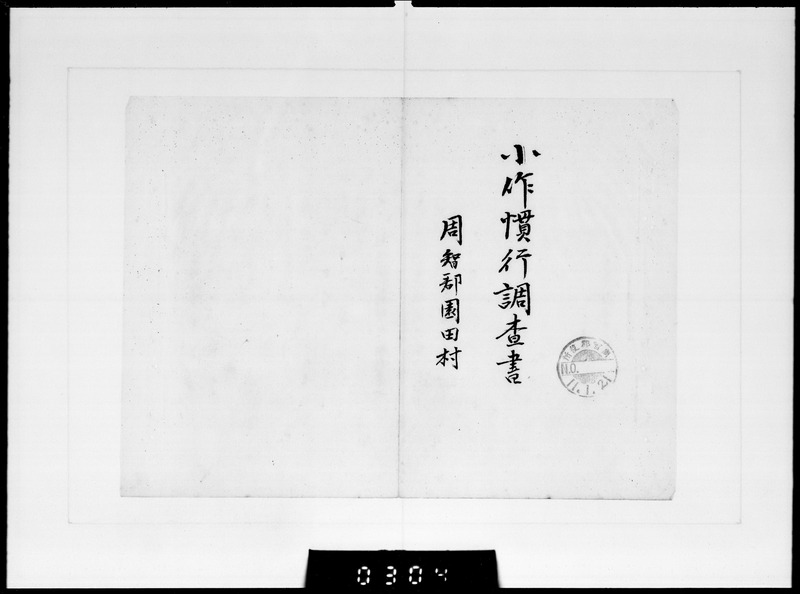 小作慣行調査書
周智郡園田村
11.1.21
0304